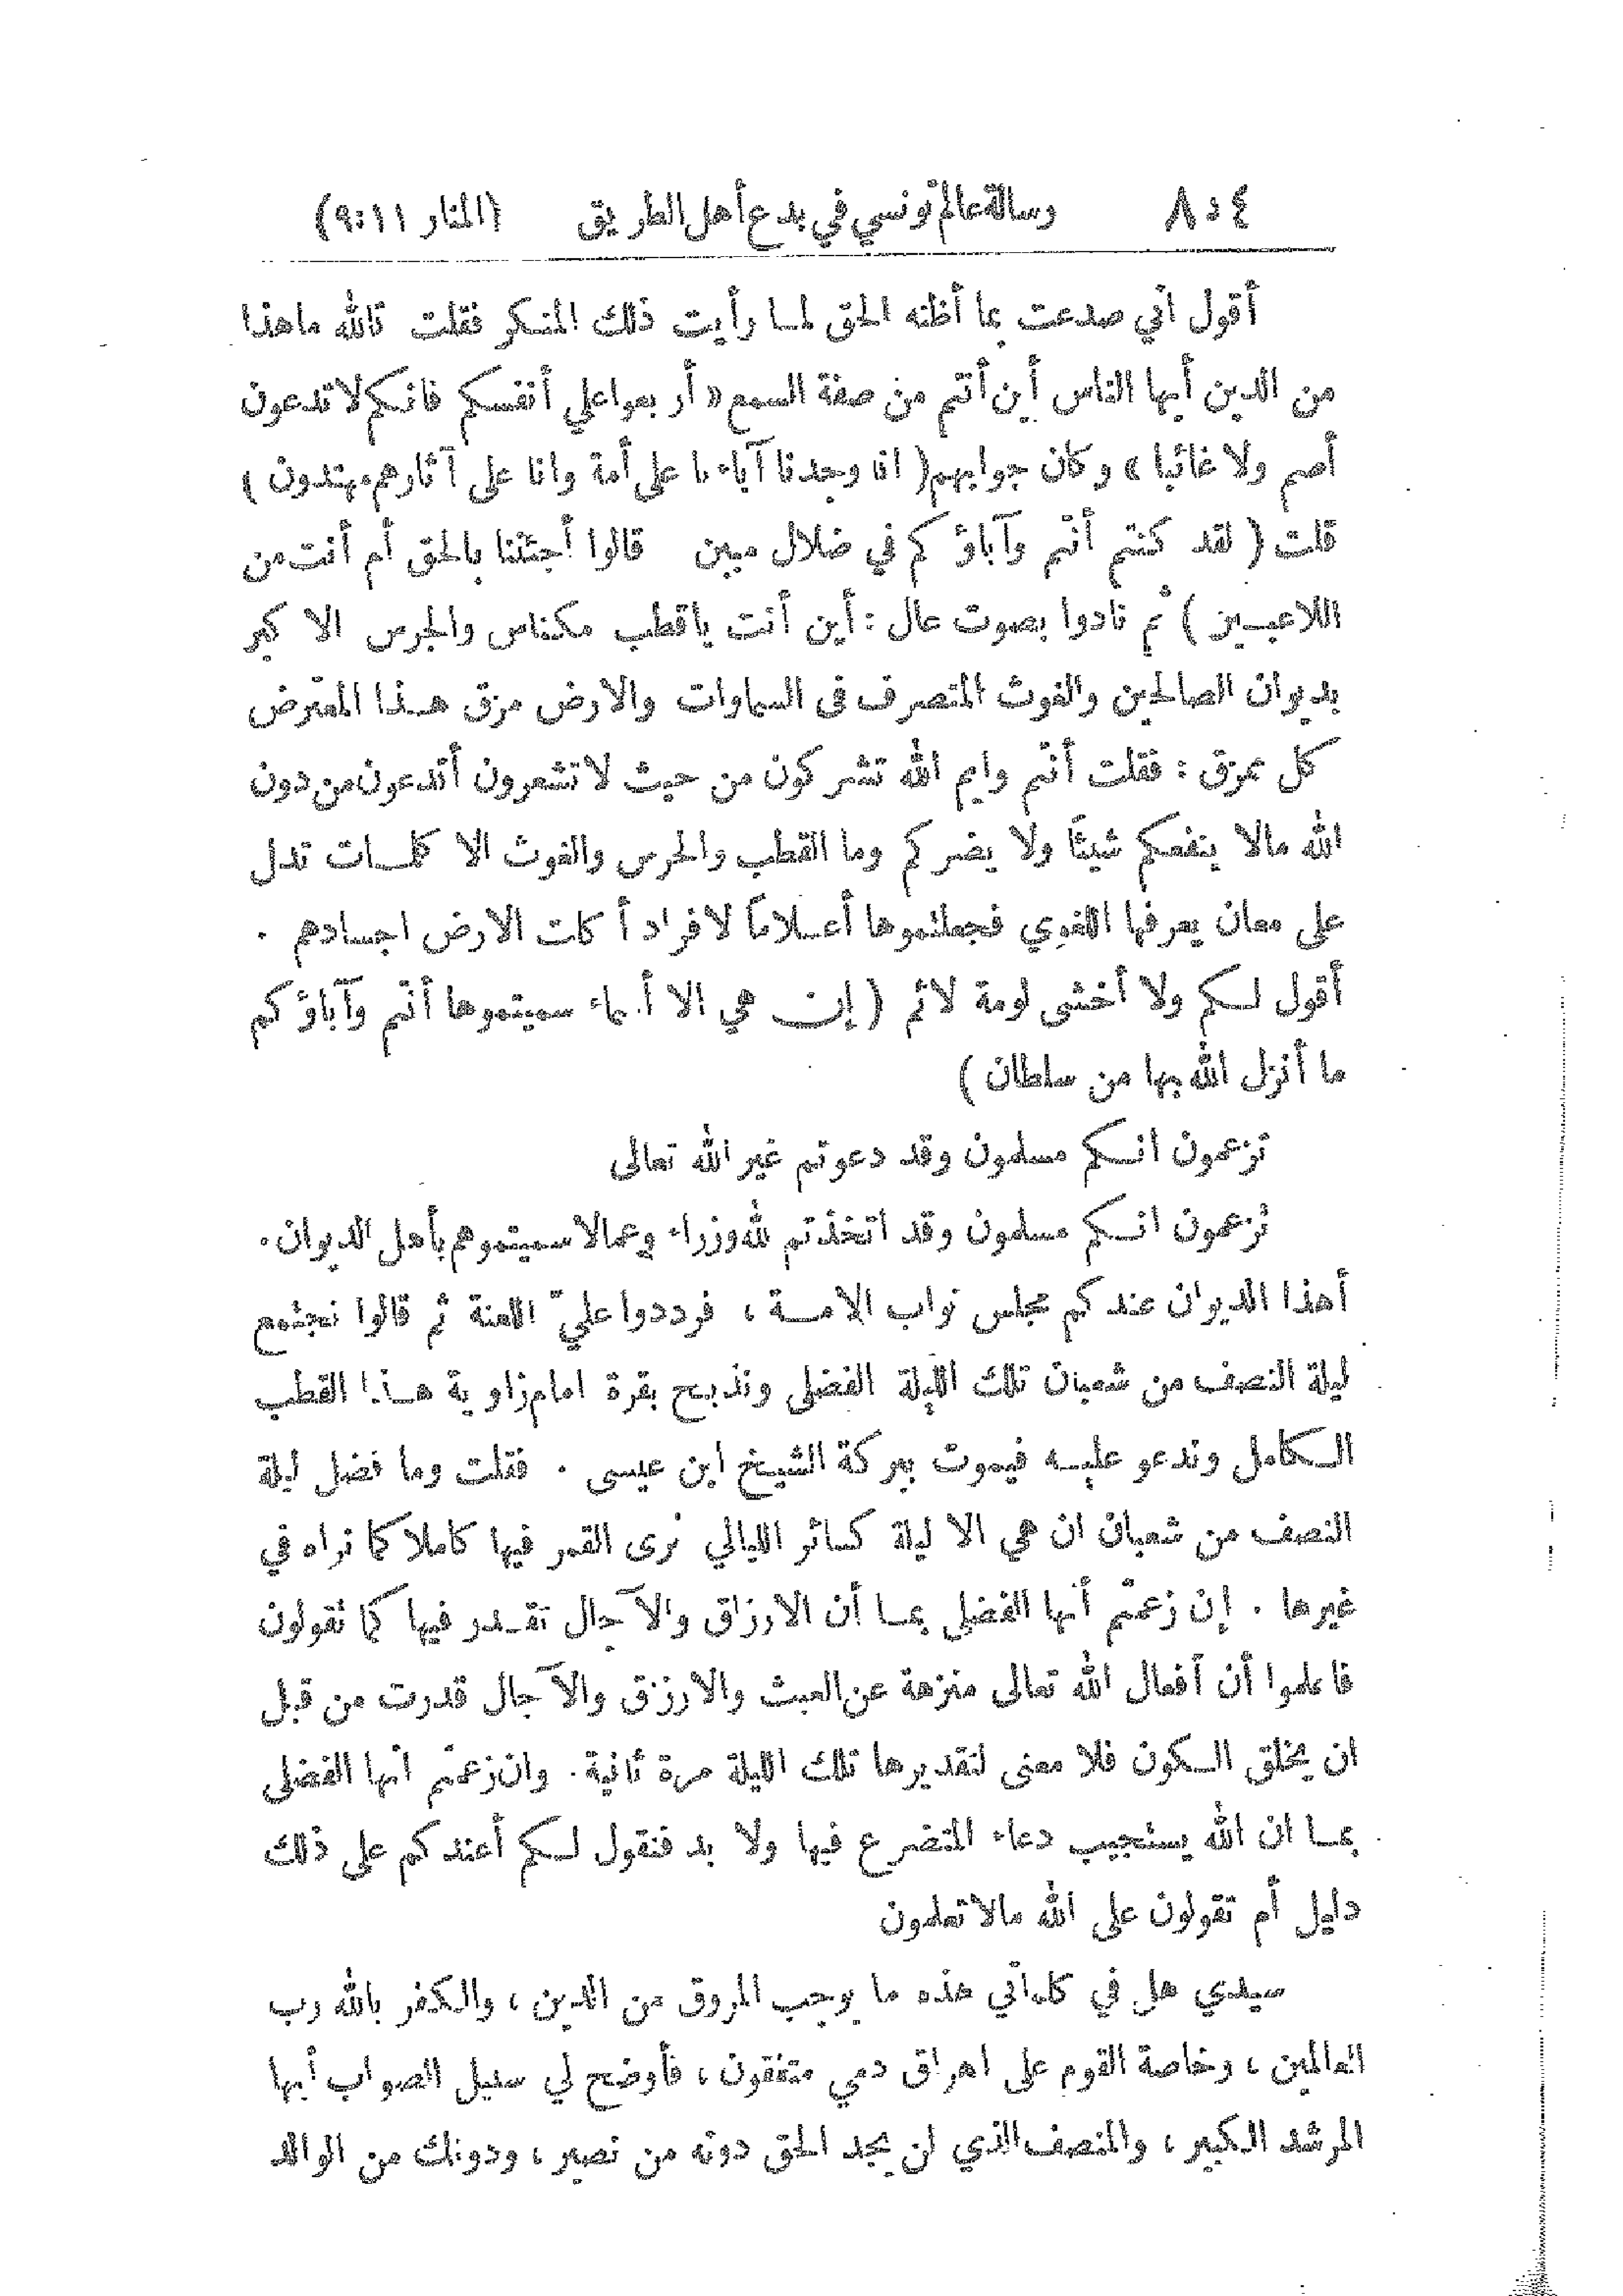 ٨٠٤ رسالة عالم تونسي في بدع أهل الطريق (المنار ٩:١١)
أقول اني صدعت بما أظنه الحق لما رأيت ذلك المنكر فقلت تالله ماهذا
من الدين أيها الناس أين أنتم من صفة السمع « أربعوا على أنفسكم فانكم لا تدعون
أصم ولا غائبا » وكان جوابهم ( انا وجدنا آباءنا على أمة وانا على آثارهم مهتدون )
قلت ( لقد كنتم أنتم وآباؤكم في ضلال مبين قالوا أجئتنا بالحق أم أنت من
اللاعبين ) ثم نادوا بصوت عال : أين أنت ياقطب مكناس والجرس الاكبر
بديوان الصالحين والغوث المتصرف في السماوات والارض مزق هذا المعترض
كل ممزق : فقلت أنتم وايم الله تشركون من حيث لا تشعرون أتدعون من دون
الله مالا ينفعكم شيئاً ولا يضركم وما القطب والجرس والغوث الا كلمات تدل
على معان يعرفها اللغوي فجعلتموها أعلاماً لافراد أكلت الارض اجسادهم .
أقول لكم ولا أخشى لومة لائم ( إن هي الا أسماء سميتموها أنتم وآباؤكم
ما أنزل الله بها من سلطان )
تزعمون انكم مسلمون وقد دعوتم غير الله تعالى
تزعمون انكم مسلمون وقد اتخذتم لله وزراء وعمالا سميتموهم بأهل الديوان .
أهذا الديوان عندكم مجلس نواب الامة ، فرددوا عليّ اللعنة ثم قالوا نجتمع
ليلة النصف من شعبان تلك الليلة الفضلى ونذبح بقرة امام زاوية هذا القطب
الكامل وندعو عليه فيموت ببركة الشيخ ابن عيسى . فقلت وما فضل ليلة
النصف من شعبان ان هي الا ليلة كسائر الليالي نرى القمر فيها كاملا كما نراه في
غيرها . إن زعمتم أنها الفضلى بما أن الارزاق والآجال تقدر فيها كما تقولون
فاعلموا أن أفعال الله تعالى منزهة عن العبث والارزق والآجال قدرت من قبل
ان يخلق الكون فلا معنى لتقديرها تلك الليلة مرة ثانية . وان زعمتم انها الفضلى
بما ان الله يستجيب دعاء المتضرع فيها ولا بد فنقول لكم أعندكم على ذلك
دليل أم تقولون على الله مالا تعلمون
سيدي هل في كلماتي هذه ما يوجب المروق من الدين ، والكفر بالله رب
العالمين ، وخاصة القوم على اهراق دمي متفقون ، فأوضح لي سبيل الصواب أيها
المرشد الكبير ، والمنصف الذي لن يجد الحق دونه من نصير ، ودونك من الوالد